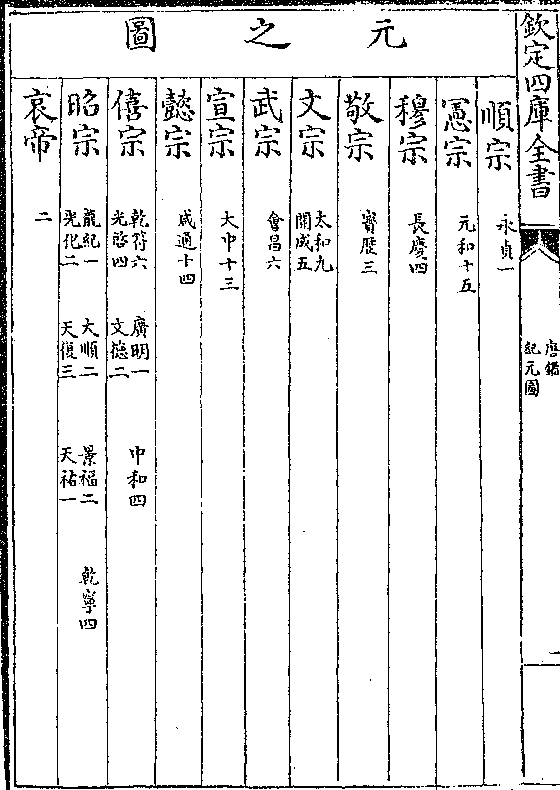 欽定四庫全書
唐鑑
紀元圖
元之圖
順宗 永貞一
憲宗 元和十五
穆宗 長慶四
敬宗 寶歷三
文宗 太和九 開成五
武宗 會昌六
宣宗 大中十三
懿宗 咸通十四
僖宗 乾符六 廣明一 中和四
光啓四 文德二
昭宗 龍紀一 大順二 景福二 乾寧四
光化二 天復三 天祐一
哀帝 二